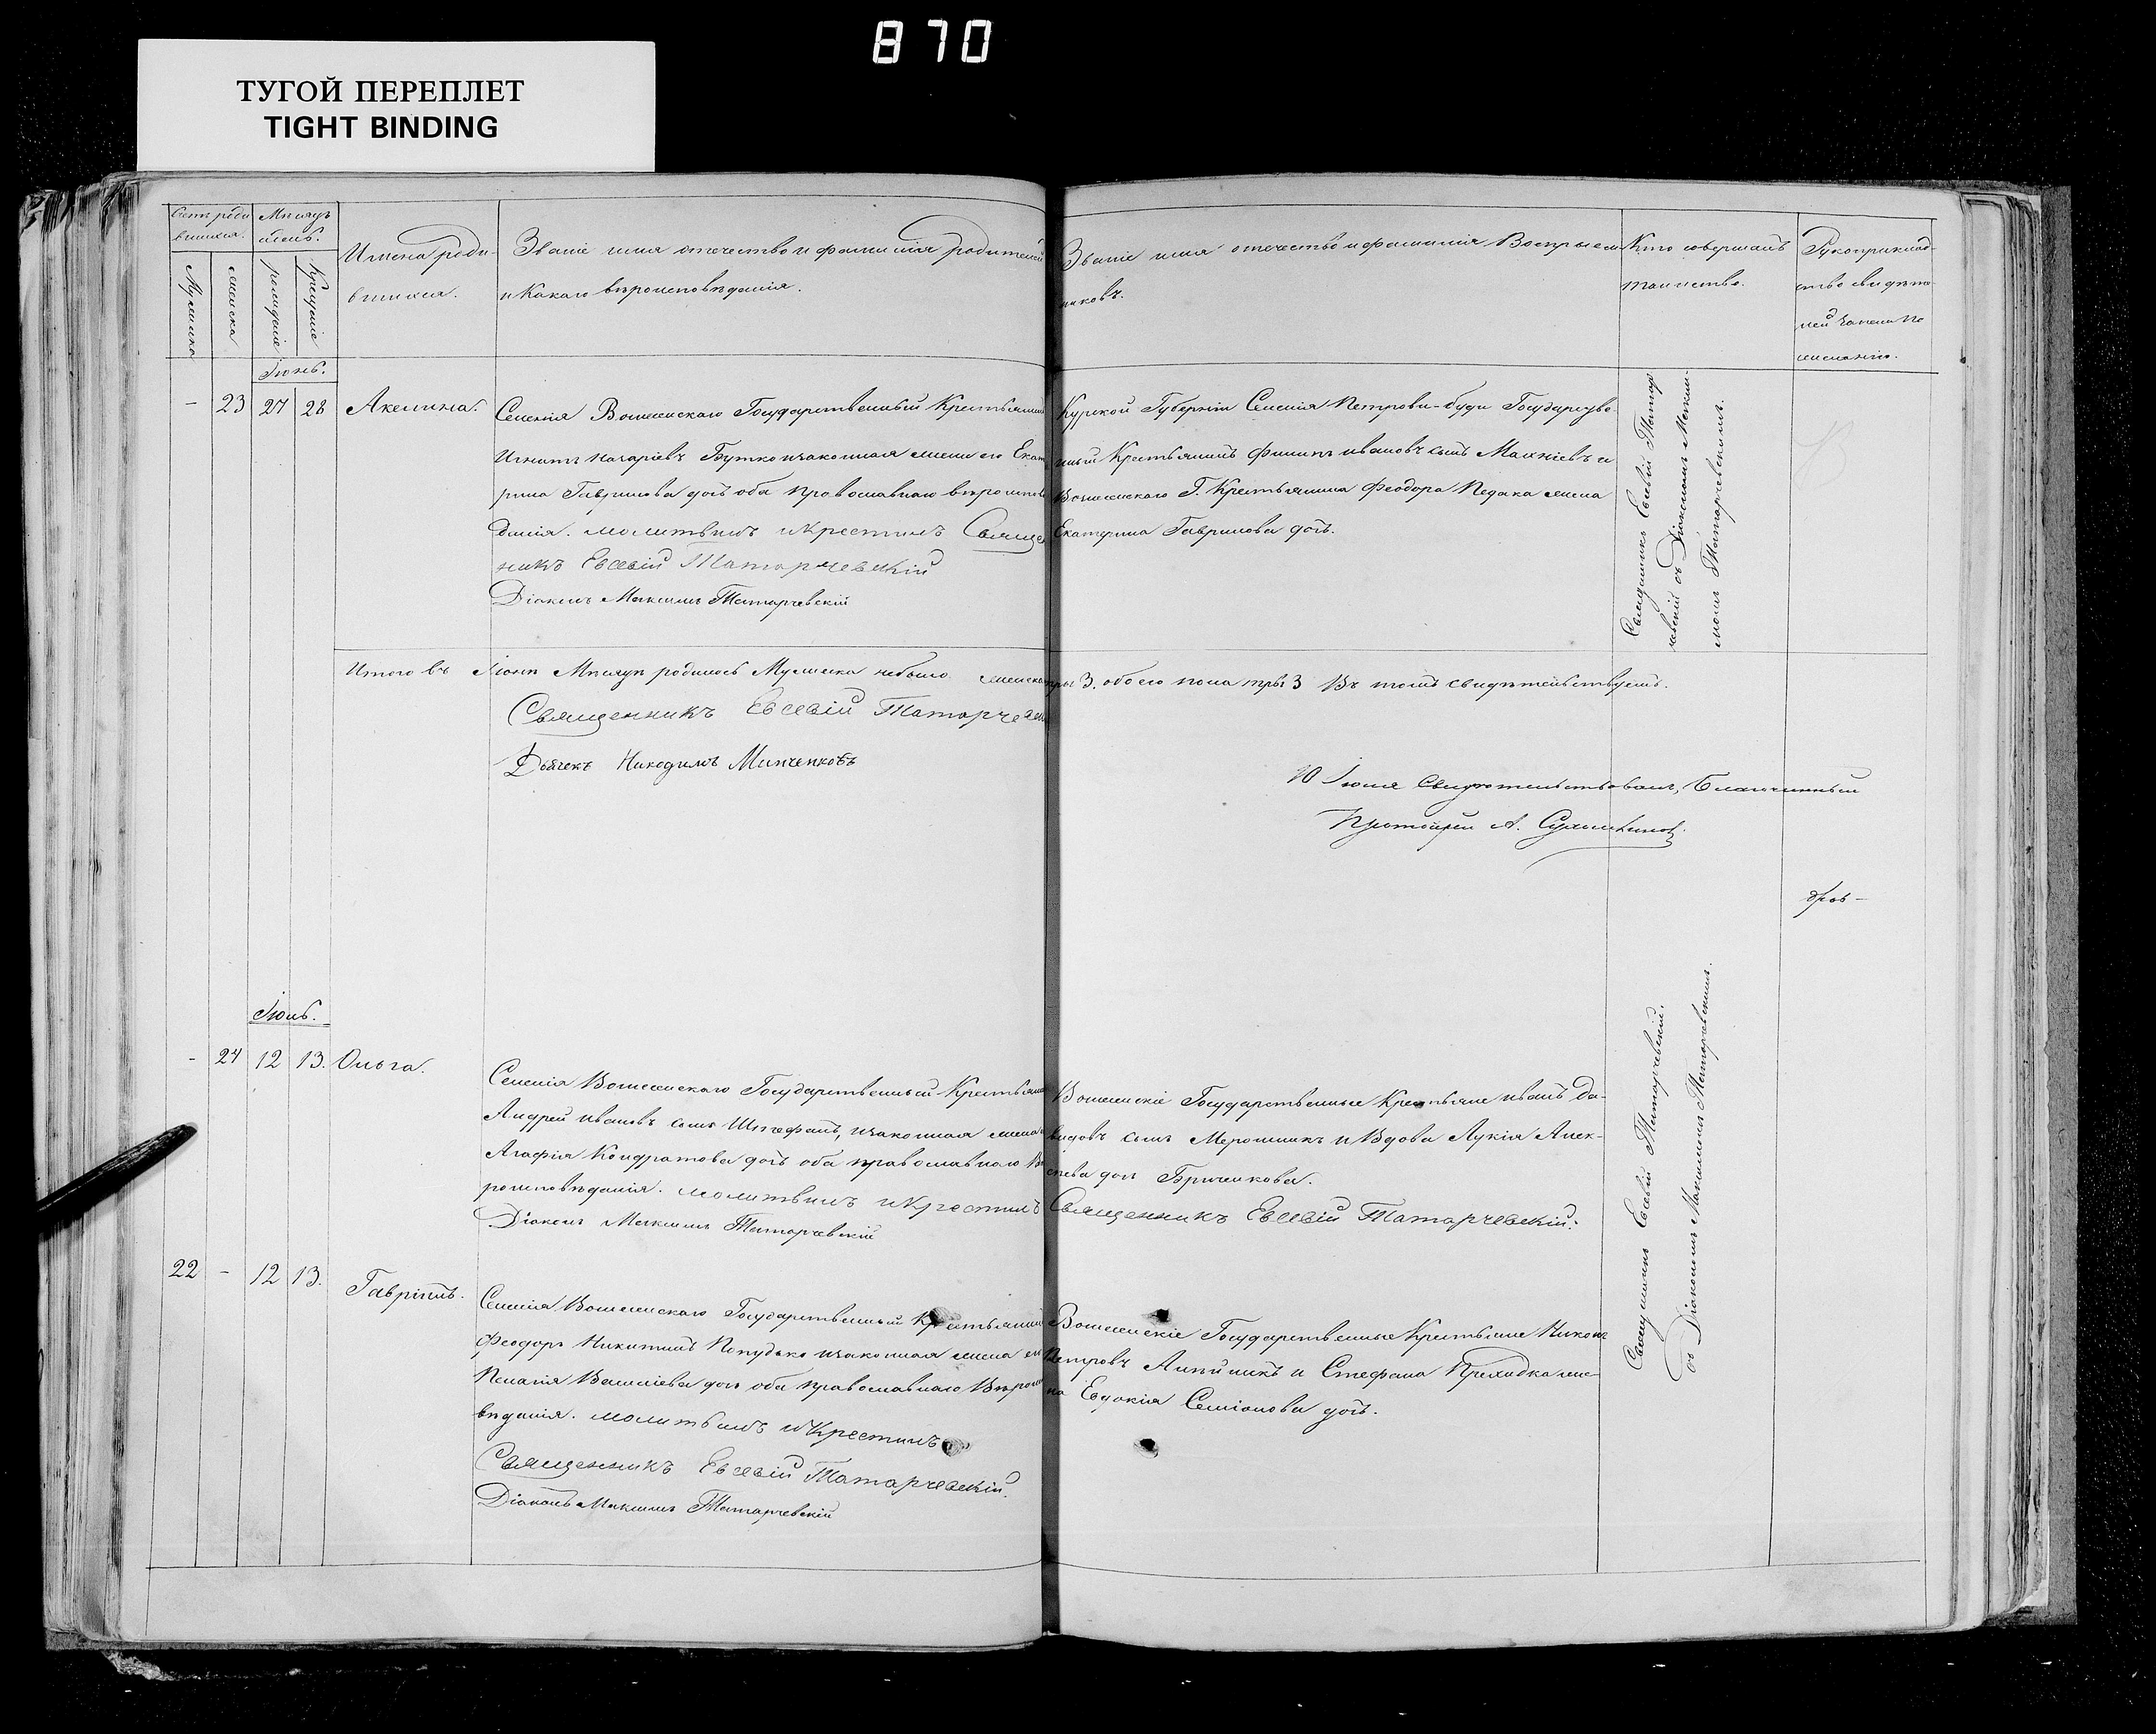 870
ТУГОЙ ПЕРЕПЛЕТ
TIGHT BINDING
Счетъ роди
вшихся.
Мѣсяцъ
и день.
Мужеска
женска
рожденіе
крещеніе
Имена роди-
вшихся.
Званіе имя отечество и фамилія родителей
и Какаго вѣроисповѣданія.
Званіе имя отечество и фамилія Воспріем-
никовъ.
Кто совершалъ
таинство.
Рукоприклад-
ство свидѣте-
лей записи по
желанію.
Іюнь.
- 23 27 28 Акелина.
Селенія Государственный Крестьянинъ
Игнатъ Назаріевъ Бутко изаконная жена его Екате
рина Гаврилова дочь оба православнаго вѣроисповѣ
данія. молитвилъ икрестилъ Священ
никъ Евсевій Татарчевскій
Діаконъ Максимъ Татарчевскій
Курской Губерніи Селенія Государстве
нный Крестьянинъ Филипъ ивановъ сынъ и
Г. Крестьянина Феодора Педака жена
Екатерина Гаврилова дочь.
Священникъ Евсевій Татар
чевскій съ Діакономъ Макси-
момъ Татарчевскимъ.
Итого въ Іюнѣ Мѣсяцѣ родилось Мужеска небыло женска
три 3. обоего пола три 3 Въ томъ свидѣтельствуемъ.
Священникъ Евсевій Татарчевскі
Дьячекъ Никодимъ Минченковъ
10 Іюля Свидѣтельствовалъ, Благочинный
Протоіерей А.
Іюль.
- 24 12 13. Ольга.
Селенія Государственный Крестьянинъ
Андрей ивановъ сынъ Штефанъ, изаконная жена
Агафія Кондратова дочь оба православнаго Вѣ
роисповѣданія. молитвилъ икрестилъ
Діаконъ Максимъ Татарчевскій
Государственные Крестьяне иванъ Да-
видовъ сынъ Мерошникъ и Вдова Лукія Алек-
сѣева дочь
Священникъ Евсевій Татарчевскій.
Священникъ Евсевій Татарчевскій.
съ Діакономъ Максимомъ Татарчевскимъ.
22 - 12 13. Гавріилъ.
Селенія Государственный Крестьянинъ
Феодоръ Никитинъ изаконная жена его
Пелагія Василіева дочь оба православнаго Вѣроиспо
вѣданія. молитвилъ икрестилъ
Священникъ Евсевій Татарчевскій.
Діаконъ Максимъ Татарчевскій
Государственные Крестьяне Никонъ
Петровъ и Стефана Приходка же-
на Евдокія Симіонова дочь.